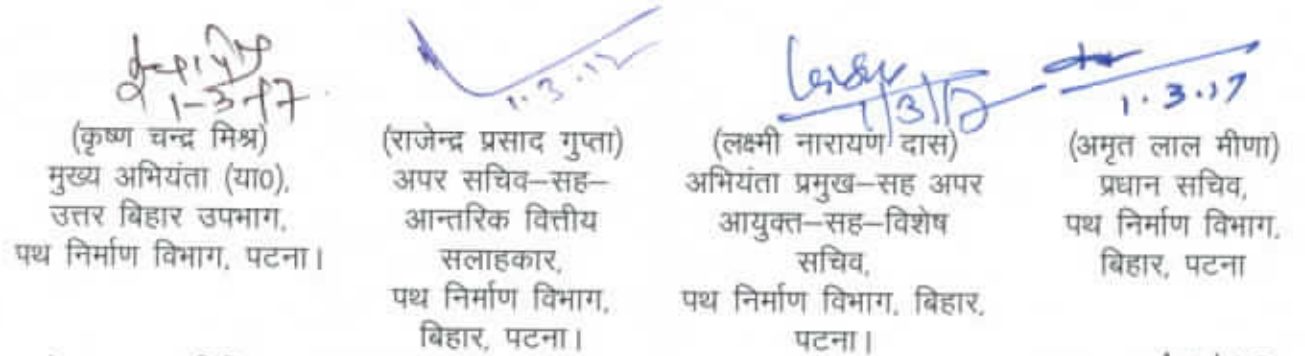 1-3-17
(कृष्ण चन्द्र मिश्र)
मुख्य अभियंता (या०),
उत्तर बिहार उपभाग,
पथ निर्माण विभाग, पटना।
1.3.17
(राजेन्द्र प्रसाद गुप्ता)
अपर सचिव–सह–
आन्तरिक वित्तीय
सलाहकार,
पथ निर्माण विभाग,
बिहार, पटना।
1/3/17
(लक्ष्मी नारायण दास)
अभियंता प्रमुख–सह अपर
आयुक्त–सह–विशेष
सचिव,
पथ निर्माण विभाग, बिहार,
पटना।
1.3.17
(अमृत लाल मीणा)
प्रधान सचिव,
पथ निर्माण विभाग,
बिहार, पटना